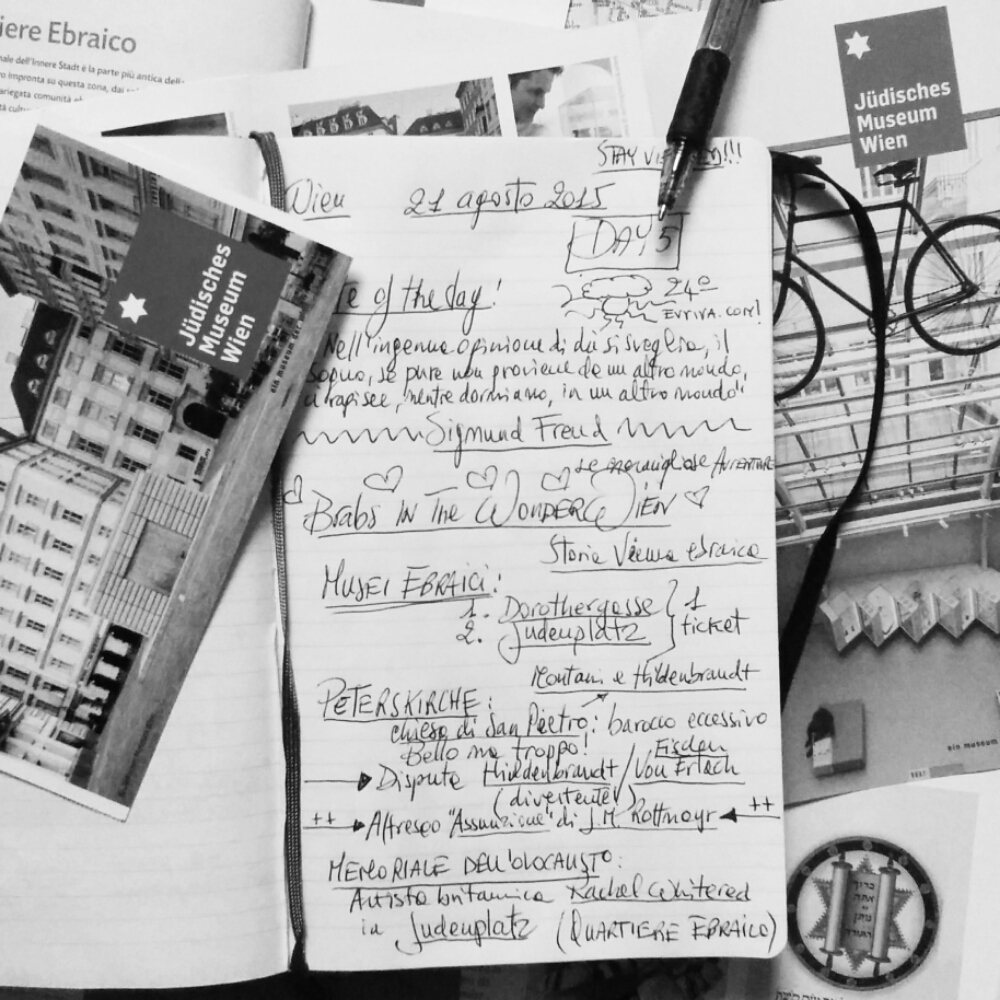 iere Ebraico
nale dell'Innere Stadt è la parte più antica della
ro impronta su questa zona, dai
ariegata comunità
tà cultu
Jüdisches
Museum
Wien
Jüdisches
Museum
Wien
ein museum
STAY !!!
Wien 21 agosto 2015
DAY 5
e of the day!
24°
EVVIVA.COM!
Nell'ingenua opinione di chi si sveglia, il
sogno, se pure non proviene da un altro mondo,
ci rapisce, mentre dormiamo, in un altro mondo"
Sigmund Freud
Le meravigliose AVVENTURE
Brabs IN The WONDERWIEN
Storia Vienna ebraica
MUSEI EBRAICI:
1. Dorothergasse
2. Judenplatz
1
ticket
Montani e Hildenbrandt
PETERSKIRCHE:
chiesa di San Pietro: barocco eccessivo
Bello ma troppo!
Dispute Hildenbrandt / Fischer Von Erlach
(divertente!)
++ Affresco "Assunzione" di J.M. Rottmayr ++
MEMORIALE DELL'OLOCAUSTO:
Artista britannica Rachel Whitered
in Judenplatz (QUARTIERE EBRAICO)
ein museum
ברוך
אתה
נותן
התורה